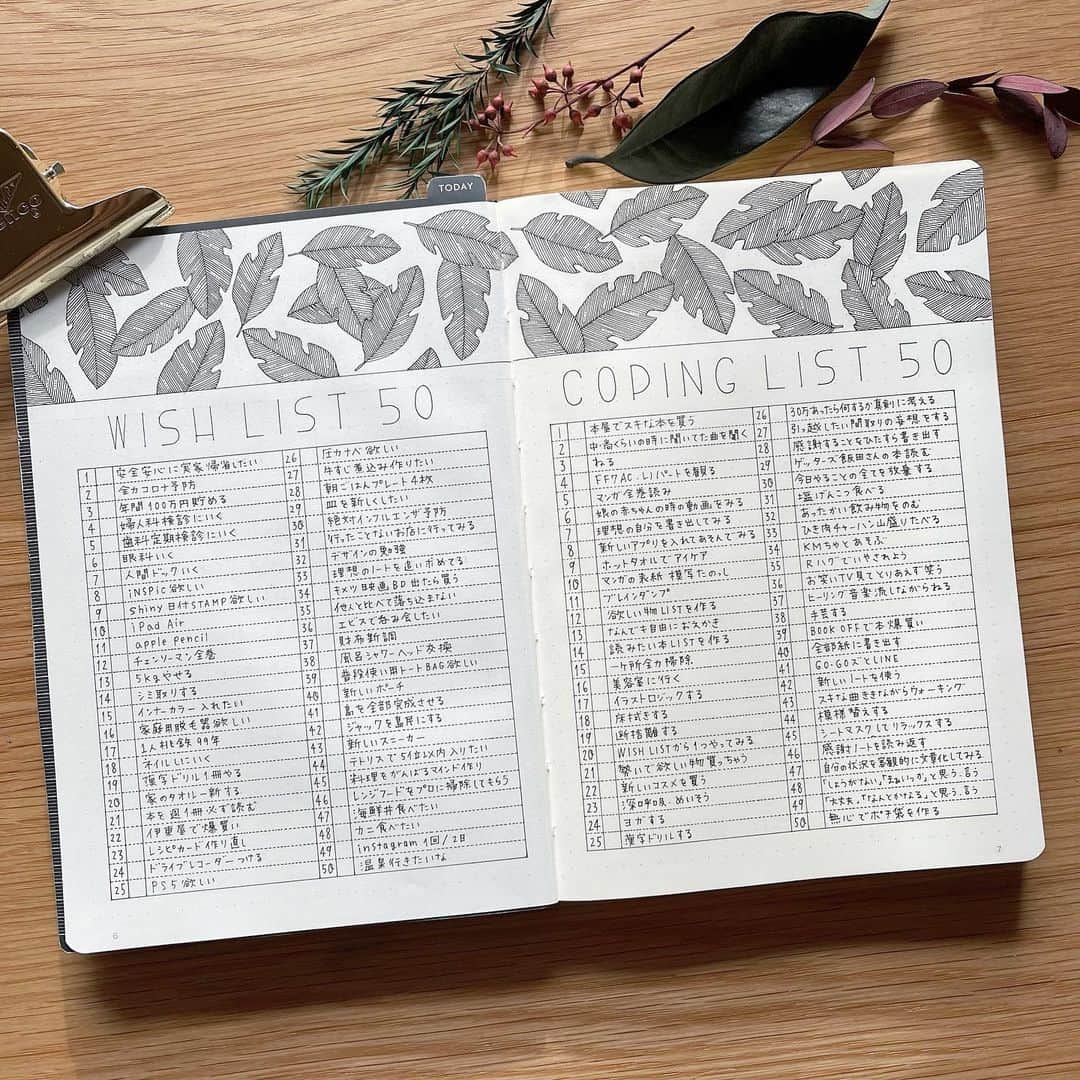 TODAY
WISH LIST 50
1 安全安心に実家帰省したい
2 全力コロナ予防
3 年間100万円貯める
4 婦人科検診にいく
5 歯科定期検診にいく
6 眼科いく
7 人間ドックいく
8 iNSPiC欲しい
9 Shiny日付STAMP欲しい
10 iPad Air
11 apple pencil
12 チェンソーマン全巻
13 5kgやせる
14 シミ取りする
15 インナーカラー入れたい
16 家庭用脱毛器欲しい
17 1人桃鉄99年
18 ネイルしにいく
19 漢字ドリル1冊やる
20 家のタオル一新する
21 本を週1冊必ず読む
22 伊東屋で爆買い
23 レシピカード作り直し
24 ドライブレコーダーつける
25 PS5欲しい
26 圧力ナベ欲しい
27 牛すじ煮込み作りたい
28 朝ごはんプレート4枚
29 皿を新しくしたい
30 絶対インフルエンザ予防
31 行ったことないお店に行ってみる
32 デザインの勉強
33 理想のノートを追い求めてる
34 キメツ映画BD出たら買う
35 他人と比べて落ち込まない
36 エビスで呑み会したい
37 財布新調
38 風呂シャワーヘッド交換
39 普段使い用トートBAG欲しい
40 新しいポーチ
41 島を全部完成させる
42 ジャックを島民にする
43 新しいスニーカー
44 テトリスで5位以内入りたい
45 料理をがんばるマインド作り
46 レンジフードをプロに掃除してもらう
47 海鮮丼食べたい
48 カニ食べたい
49 instagram 1回/2日
50 温泉行きたいな
6
CODING LIST 50
1 本屋でスキな本を買う
2 中・高くらいの時に聞いてた曲を聞く
3 ねる
4 FF7AC.レリパートを観る
5 マンガ全巻読み
6 娘の赤ちゃんの時の動画をみる
7 理想の自分を書き出してみる
8 新しいアプリを入れてあそんでみる
9 ホットタオルでアイケア
10 マンガの表紙 模写たのっし
11 ブレインダンプ
12 欲しい物LISTを作る
13 なんでも自由におえかき
14 読みたい本LISTを作る
15 一ヶ所全力掃除
16 美容室に行く
17 イラストロジックする
18 床拭きする
19 断捨離する
20 WISH LISTから1つやってみる
21 勢いで欲しい物買っちゃう
22 新しいコスメを買う
23 深呼吸・めいそう
24 ヨガする
25 漢字ドリルする
26 30万あったら何するか真剣に考える
27 引っ越したい間取りの妄想をする
28 感謝することをひたすら書き出す
29 ゲッターズ飯田さんの本読む
30 今日やることの全てを放棄する
31 塩げんこつ食べる
32 あったかい飲み物をのむ
33 ひき肉チャーハン山盛りたべる
34 KMちゃとあそぶ
35 Rハグでいやされよう
36 お笑いTV見てとりあえず笑う
37 ヒーリング音楽流しながらねる
38 手芸する
39 BOOK OFFで本爆買い
40 全部紙に書き出す
41 GO-GOズとLINE
42 新しいノートを使う
43 スキな曲ききながらウォーキング
44 模様替えする
45 シートマスクしてリラックスする
46 感謝ノートを読み返す
47 自分の状況を客観的に文章化してみる
48 「しょうがない」「まぁいっか」と思う、言う
49 「大丈夫」「なんとかなる」と思う、言う
50 無心でポチ袋を作る
7